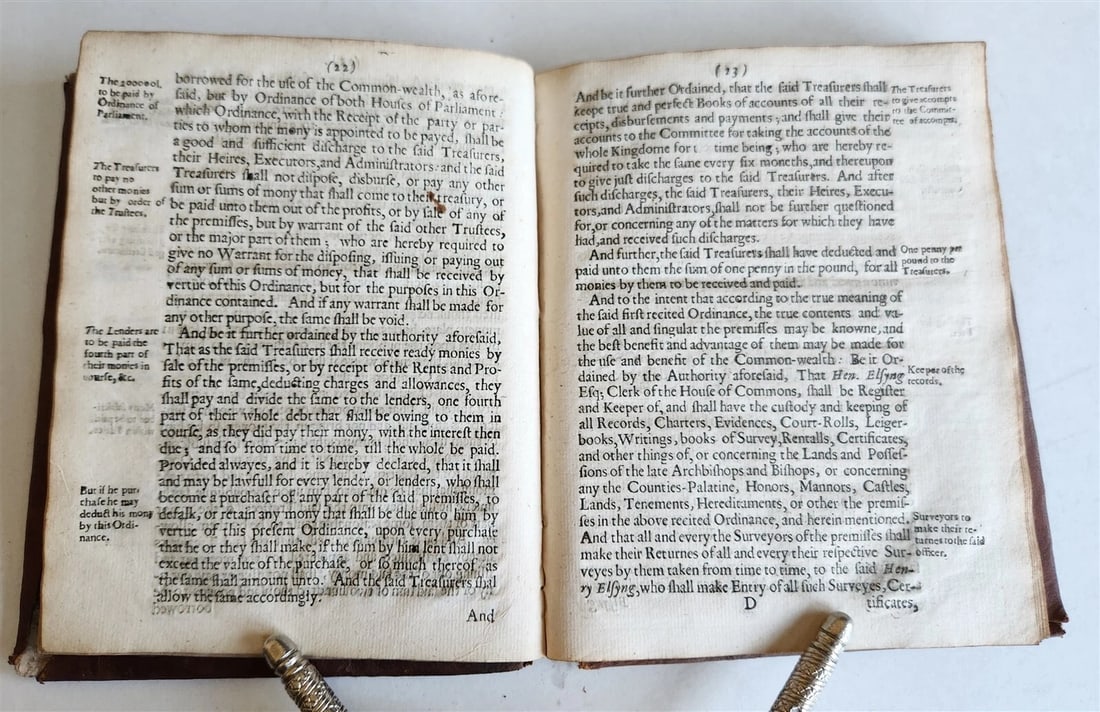 (22)
The 200000l.
to be paid by
Ordinance of
Parliament.
borrowed for the uſe of the Common-wealth, as afore-
ſaid, but by Ordinance of both Houſes of Parliament:
which Ordinance, with the Receipt of the party or par-
ties to whom the mony is appointed to be payed, ſhall be
a good and ſufficient diſcharge to the ſaid Treaſurers,
their Heires, Executors, and Adminiſtrators: and the ſaid
The Treaſurers
to pay no
other monies
but by order of
the Truſtees.
Treaſurers ſhall not diſpoſe, disburſe, or pay any other
ſum or ſums of mony that ſhall come to their treaſury, or
be paid unto them out of the profits, or by ſale of any of
the premiſſes, but by warrant of the ſaid other Truſtees,
or the major part of them; who are hereby required to
give no Warrant for the diſpoſing, iſſuing or paying out
of any ſum or ſums of money, that ſhall be received by
vertue of this Ordinance, but for the purpoſes in this Or-
dinance contained. And if any warrant ſhall be made for
any other purpoſe, the ſame ſhall be void.
The Lenders are
to be paid the
fourth part of
their monies in
courſe, &c.
And be it further ordained by the authority aforeſaid,
That as the ſaid Treaſurers ſhall receive ready monies by
ſale of the premiſſes, or by receipt of the Rents and Pro-
fits of the ſame, deducting charges and allowances, they
ſhall pay and divide the ſame to the lenders, one fourth
part of their whole debt that ſhall be owing to them in
courſe, as they did pay their mony, with the intereſt then
due; and ſo from time to time, till the whole be paid.
Provided alwayes, and it is hereby declared, that it ſhall
and may be lawfull for every lender, or lenders, who ſhall
But if he pur-
chaſe he may
deduct his mony
by this Ordi-
nance.
become a purchaſer of any part of the ſaid premiſſes, to
defalk, or retain any mony that ſhall be due unto him by
vertue of this preſent Ordinance, upon every purchaſe
that he or they ſhall make, if the ſum by him lent ſhall not
exceed the value of the purchaſe, or ſo much thereof as
the ſame ſhall amount unto. And the ſaid Treaſurers ſhall
allow the ſame accordingly.
And
(23)
And be it further Ordained, that the ſaid Treaſurers ſhall
keepe true and perfect Books of accounts of all their re-
ceipts, disburſements and payments; and ſhall give their
accounts to the Committee for taking the accounts of the
whole Kingdome for time being; who are hereby re-
quired to take the ſame every ſix moneths, and thereupon
to give juſt diſcharges to the ſaid Treaſurers. And after
ſuch diſcharges, the ſaid Treaſurers, their Heires, Execu-
tors, and Adminiſtrators, ſhall not be further queſtioned
for, or concerning any of the matters for which they have
had, and received ſuch diſcharges.
The Treaſurers
to give accompts
to the Commit-
tee of accompts.
And further, the ſaid Treaſurers ſhall have deducted and
paid unto them the ſum of one penny in the pound, for all
monies by them to be received and paid.
One penny per
pound to the
Treaſurers.
And to the intent that according to the true meaning of
the ſaid firſt recited Ordinance, the true contents and va-
lue of all and ſingular the premiſſes may be knowne, and
the beſt benefit and advantage of them may be made for
the uſe and benefit of the Common-wealth: Be it Or-
dained by the Authority aforeſaid, That Hen. Elſyng
Eſq; Clerk of the Houſe of Commons, ſhall be Regiſter
and Keeper of, and ſhall have the cuſtody and keeping of
all Records, Charters, Evidences, Court-Rolls, Leiger-
books, Writings, books of Survey, Rentalls, Certificates,
and other things of, or concerning the Lands and Poſſeſ-
ſions of the late Archbiſhops and Biſhops, or concerning
any the Counties-Palatine, Honors, Mannors, Caſtles,
Lands, Tenements, Hereditaments, or other the premiſ-
ſes in the above recited Ordinance, and herein mentioned.
Keeper of the
records.
And that all and every the Surveyors of the premiſſes ſhall
make their Returnes of all and every their reſpective Sur-
veyes by them taken from time to time, to the ſaid Hen-
ry Elſyng, who ſhall make Entry of all ſuch Surveyes, Cer-
Surveyors to
make their re-
turnes to the ſaid
officer.
D
tificates,